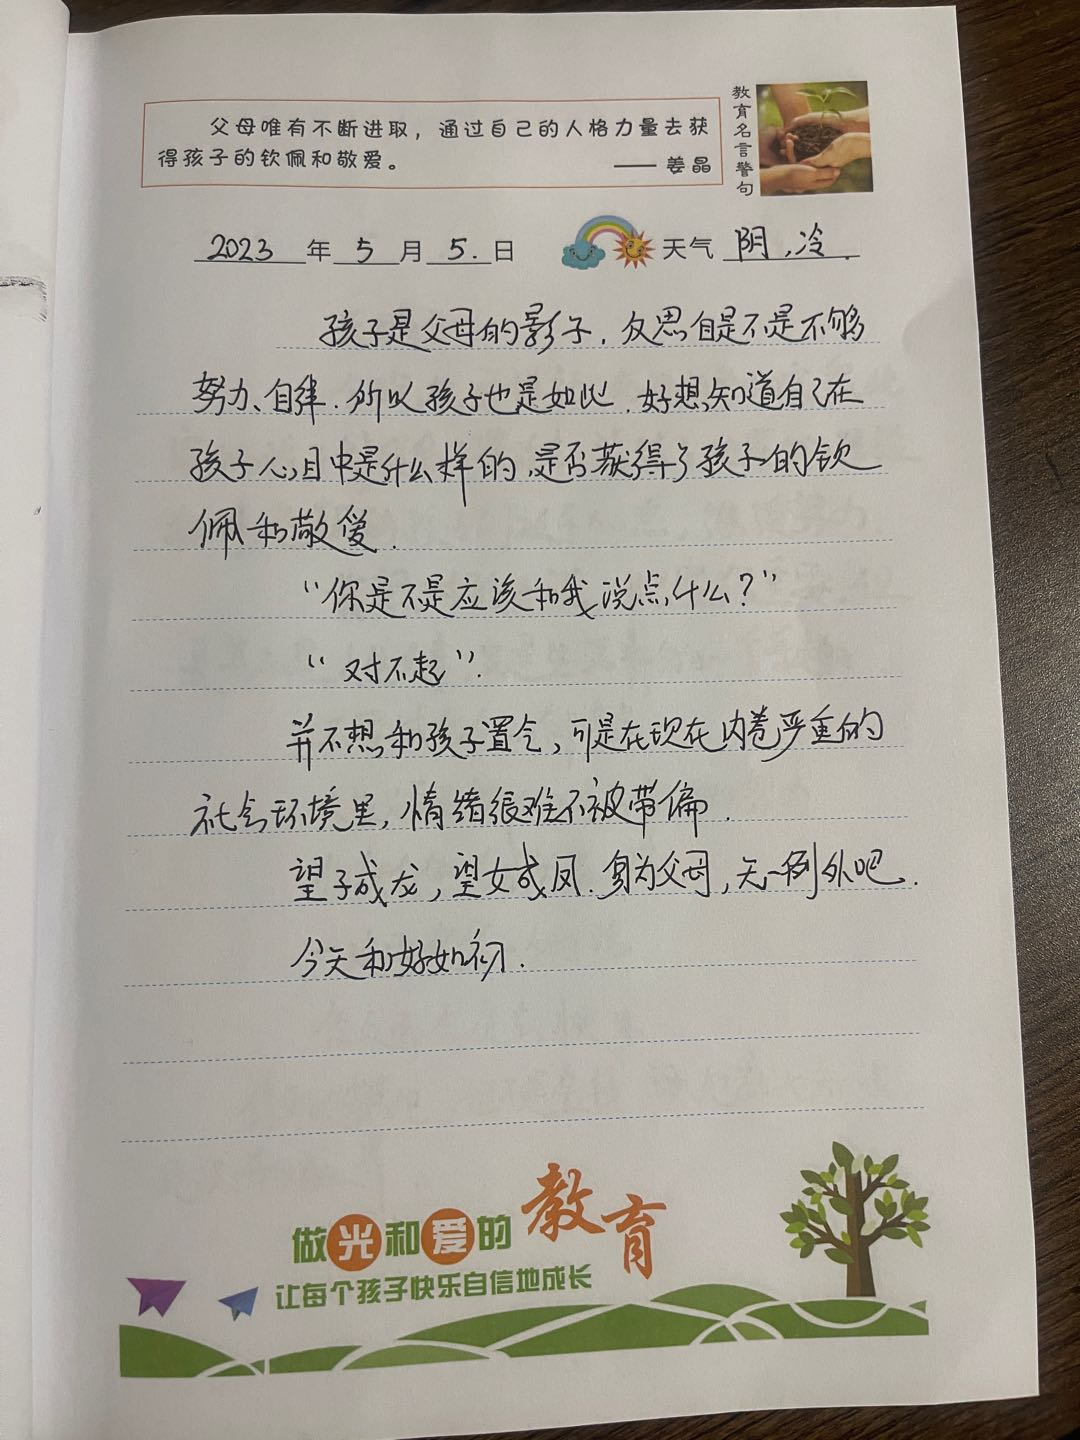 父母唯有不断进取，通过自己的人格力量去获
得孩子的钦佩和敬爱。 —— 姜晶
教育名言警句
2023 年 5 月 5. 日 天气 阴，冷.
孩子是父母的影子. 反思自是不是不够
努力、自律. 所以孩子也是如此. 好想知道自己在
孩子心目中是什么样的,是否获得了孩子的钦
佩和敬爱.
“你是不是应该和我说点什么？”
“对不起”.
并不想和孩子置气, 可是在现在内卷严重的
社会环境里, 情绪很难不被带偏.
望子成龙, 望女成凤. 身为父母, 无一例外吧.
今天和好如初.
做光和爱的教育
让每个孩子快乐自信地成长